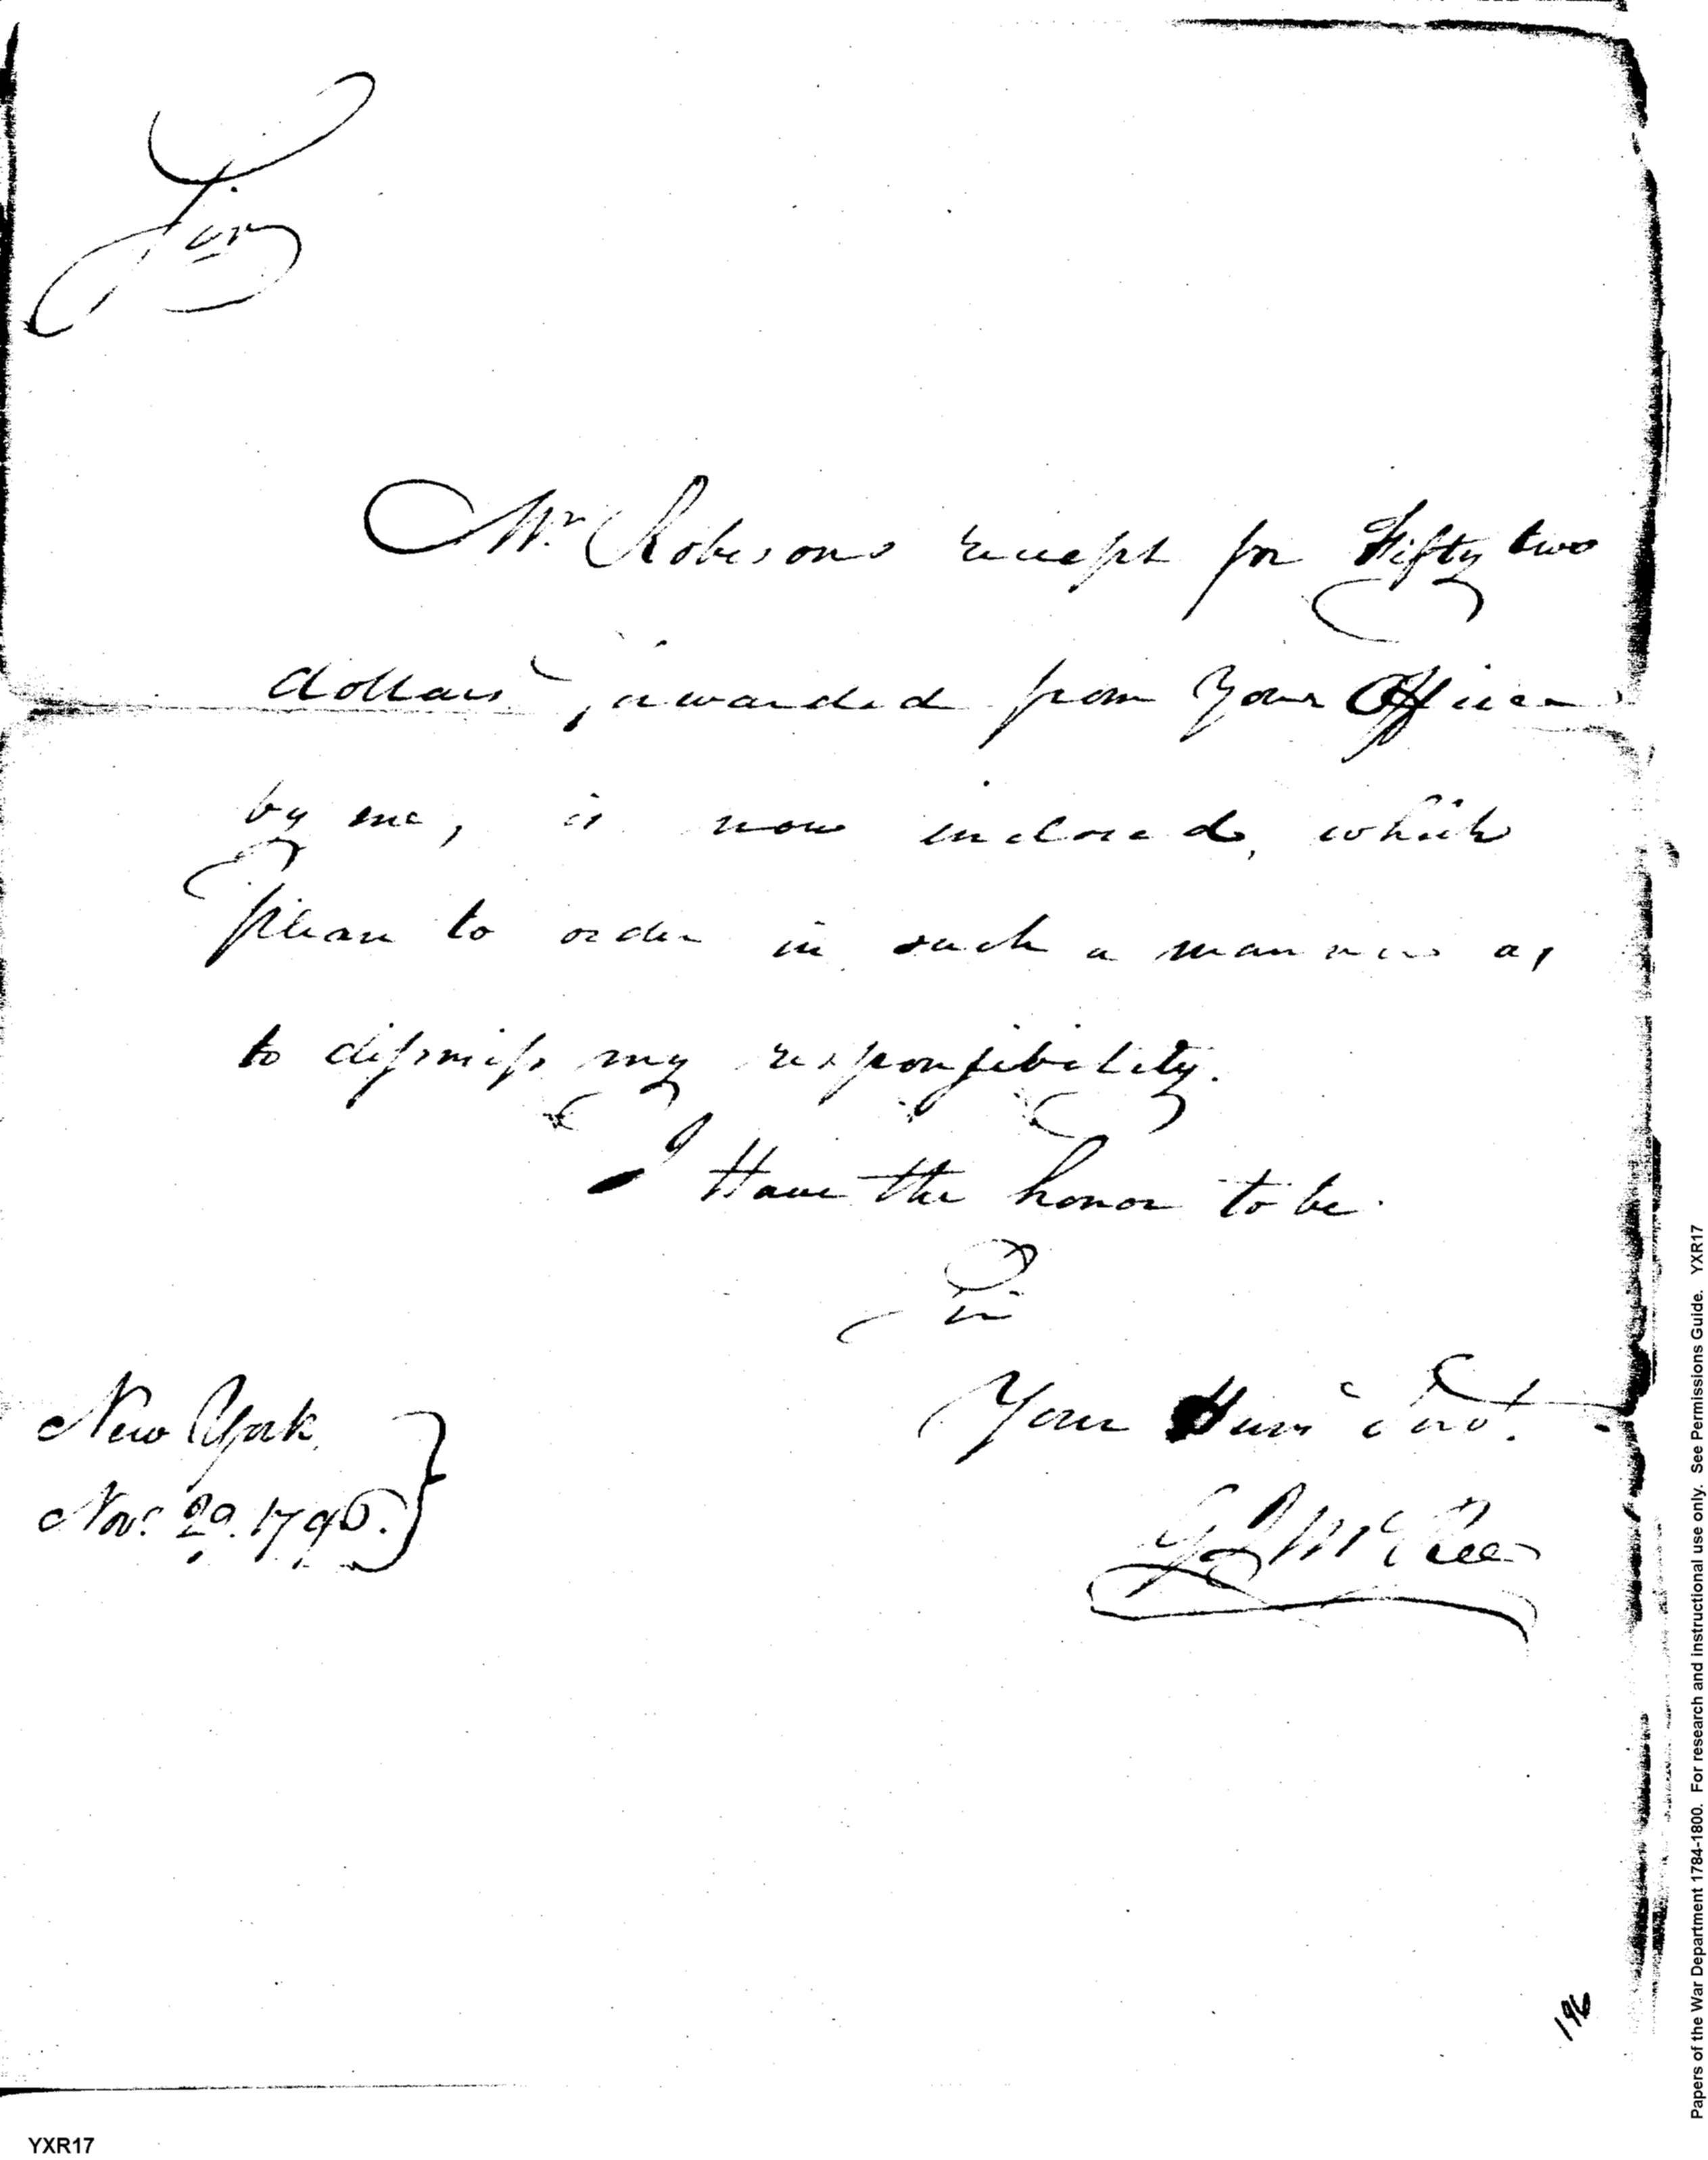 Sir
Mr Robisons receipt for Fifty two
dollars, awarded from Your Office
by me, is now inclosed, which
please to order in such a manner as
to dissmiss my responsibility.
I Have the honor to be
Sir
Your Hum Servt.
New York
Novr 29. 1796.
McRee
196
YXR17
Papers of the War Department 1784-1800. For research and instructional use only. See Permissions Guide. YXR17